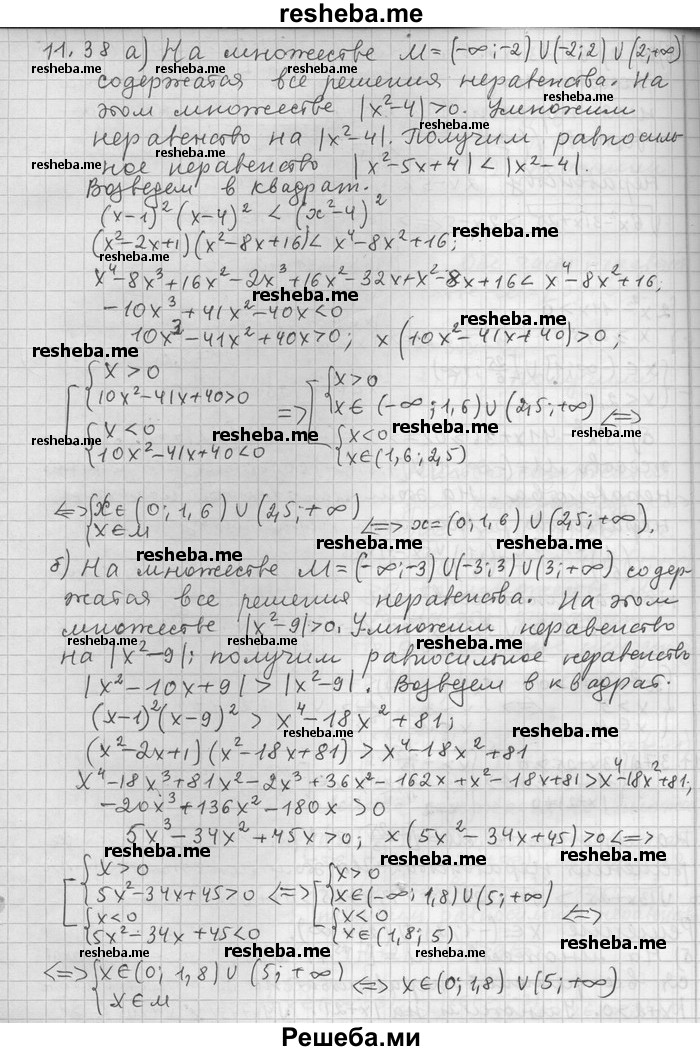 resheba.me
11.38 а) На множестве M = (-∞;-2) ∪ (-2;2) ∪ (2;+∞)
содержатся все решения неравенства. На
этом множестве |x²-4|>0. Умножим
неравенство на |x²-4|. Получим равносиль-
ное неравенство |x²-5x+4| < |x²-4|.
Возведем в квадрат.
(x-1)² (x-4)² < (x²-4)²
(x²-2x+1)(x²-8x+16) < x⁴-8x²+16;
x⁴-8x³+16x²-2x³+16x²-32x+x²-8x+16 < x⁴-8x²+16;
-10x³+41x²-40x<0
10x³-41x²+40x>0; x(10x²-41x+40)>0;
[ { x>0 { x>0
10x²-41x+40>0 => [ x∈(-∞;1,6) ∪ (2,5;+∞) <=>
{ x<0 { x<0
10x²-41x+40<0 x∈(1,6;2,5)
<=> { x∈(0;1,6) ∪ (2,5;+∞) <=> x=(0;1,6) ∪ (2,5;+∞).
x∈M
б) На множестве M=(-∞;-3)∪(-3;3)∪(3;+∞) содер-
жатся все решения неравенства. На этом
множестве |x²-9|>0. Умножим неравенство
на |x²-9|; получим равносильное неравенство
|x²-10x+9| > |x²-9|. Возведем в квадрат.
(x-1)²(x-9)² > x⁴-18x²+81;
(x²-2x+1)(x²-18x+81) > x⁴-18x²+81
x⁴-18x³+81x²-2x³+36x²-162x+x²-18x+81>x⁴-18x²+81;
-20x³+136x²-180x>0
5x³-34x²+45x>0; x(5x²-34x+45)>0 <=>
[ { x>0 { x>0
5x²-34x+45>0 <=> [ x∈(-∞;1,8)∪(5;+∞)
{ x<0 { x<0 <=>
5x²-34x+45<0 x∈(1,8;5)
<=> { x∈(0;1,8) ∪ (5;+∞) <=> x∈(0;1,8) ∪ (5;+∞)
x∈M
Решеба.ми